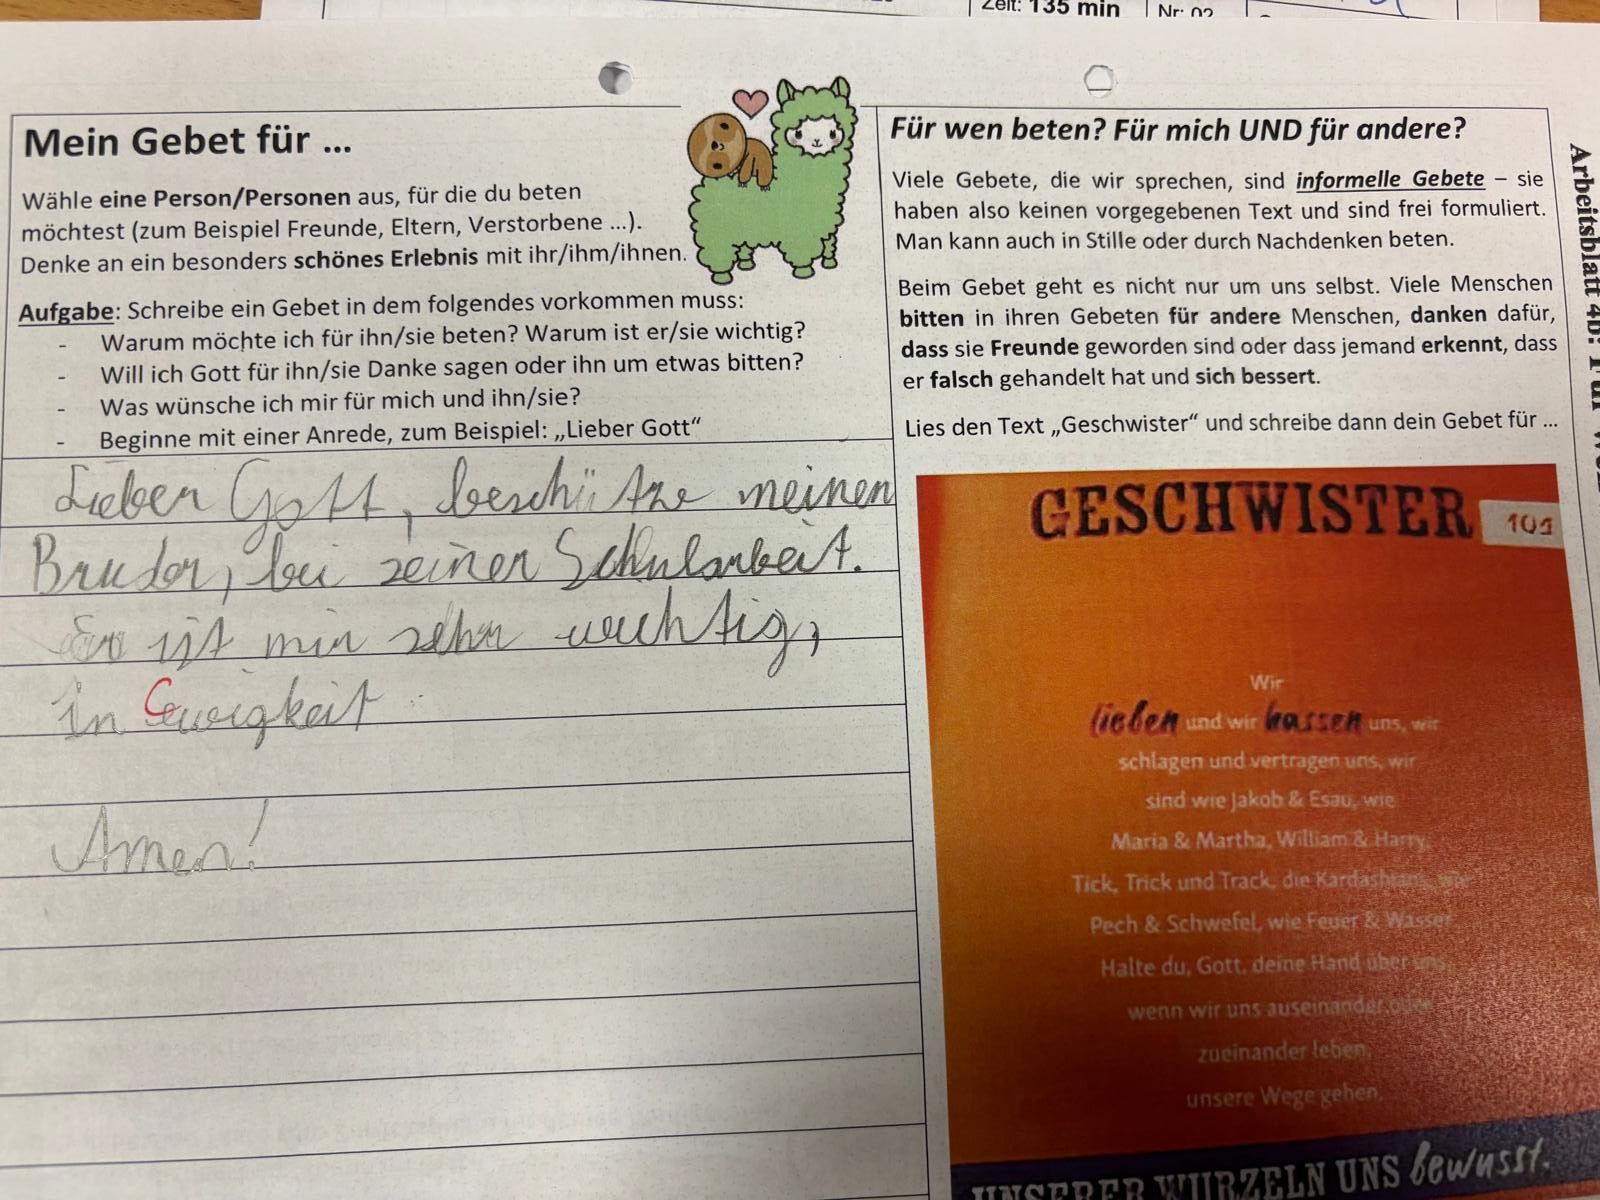 Zeit: 135 min
Nr: 02
Mein Gebet für ...
Wähle eine Person/Personen aus, für die du beten
möchtest (zum Beispiel Freunde, Eltern, Verstorbene ...).
Denke an ein besonders schönes Erlebnis mit ihr/ihm/ihnen.
Aufgabe: Schreibe ein Gebet in dem folgendes vorkommen muss:
- Warum möchte ich für ihn/sie beten? Warum ist er/sie wichtig?
- Will ich Gott für ihn/sie Danke sagen oder ihn um etwas bitten?
- Was wünsche ich mir für mich und ihn/sie?
- Beginne mit einer Anrede, zum Beispiel: „Lieber Gott“
Lieber Gott, beschütze meinen
Bruder, bei seiner Schularbeit.
Er ist mir sehr wichtig,
in Ewigkeit
Amen!
Für wen beten? Für mich UND für andere?
Viele Gebete, die wir sprechen, sind informelle Gebete – sie
haben also keinen vorgegebenen Text und sind frei formuliert.
Man kann auch in Stille oder durch Nachdenken beten.
Beim Gebet geht es nicht nur um uns selbst. Viele Menschen
bitten in ihren Gebeten für andere Menschen, danken dafür,
dass sie Freunde geworden sind oder dass jemand erkennt, dass
er falsch gehandelt hat und sich bessert.
Lies den Text „Geschwister“ und schreibe dann dein Gebet für ...
GESCHWISTER
101
Wir
lieben und wir hassen uns, wir
schlagen und vertragen uns, wir
sind wie Jakob & Esau, wie
Maria & Martha, William & Harry,
Tick, Trick und Track, die Kardashians, wie
Pech & Schwefel, wie Feuer & Wasser.
Halte du, Gott, deine Hand über uns,
wenn wir uns auseinander oder
zueinander leben,
unsere Wege gehen.
UNSERER WURZELN UNS bewusst.
Arbeitsblatt 4b: Für